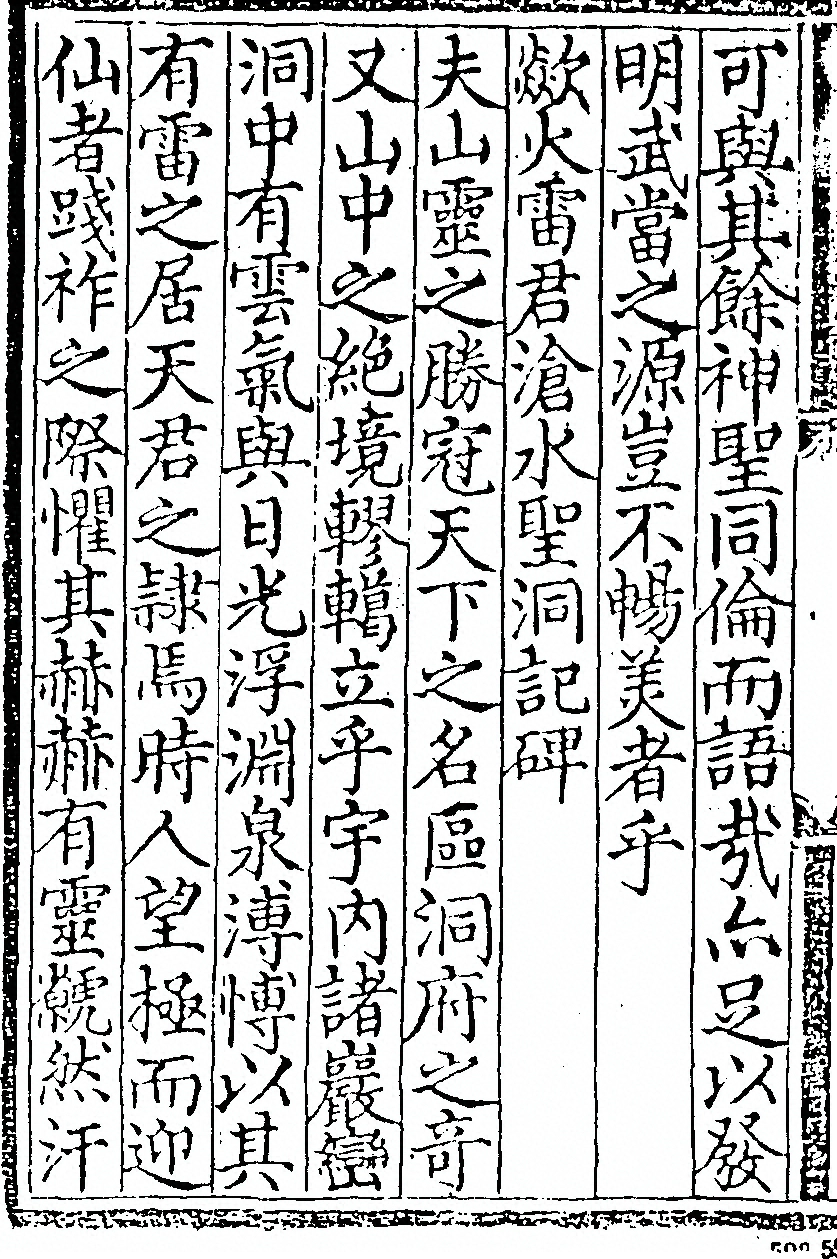 可與其餘神聖同倫而語㢤亦足以發
明武當之源豈不暢美者乎
歘火雷君滄水聖洞記碑
夫山靈之勝冠天下之名區洞府之竒
又山中之絶境轇轕立乎宇內諸巖巒
洞中有雲氣與日光浮淵泉溥博以其
有雷之居天君之隸焉時人望極而迎
仙者踐祚之際懼其赫赫有靈虩然汗